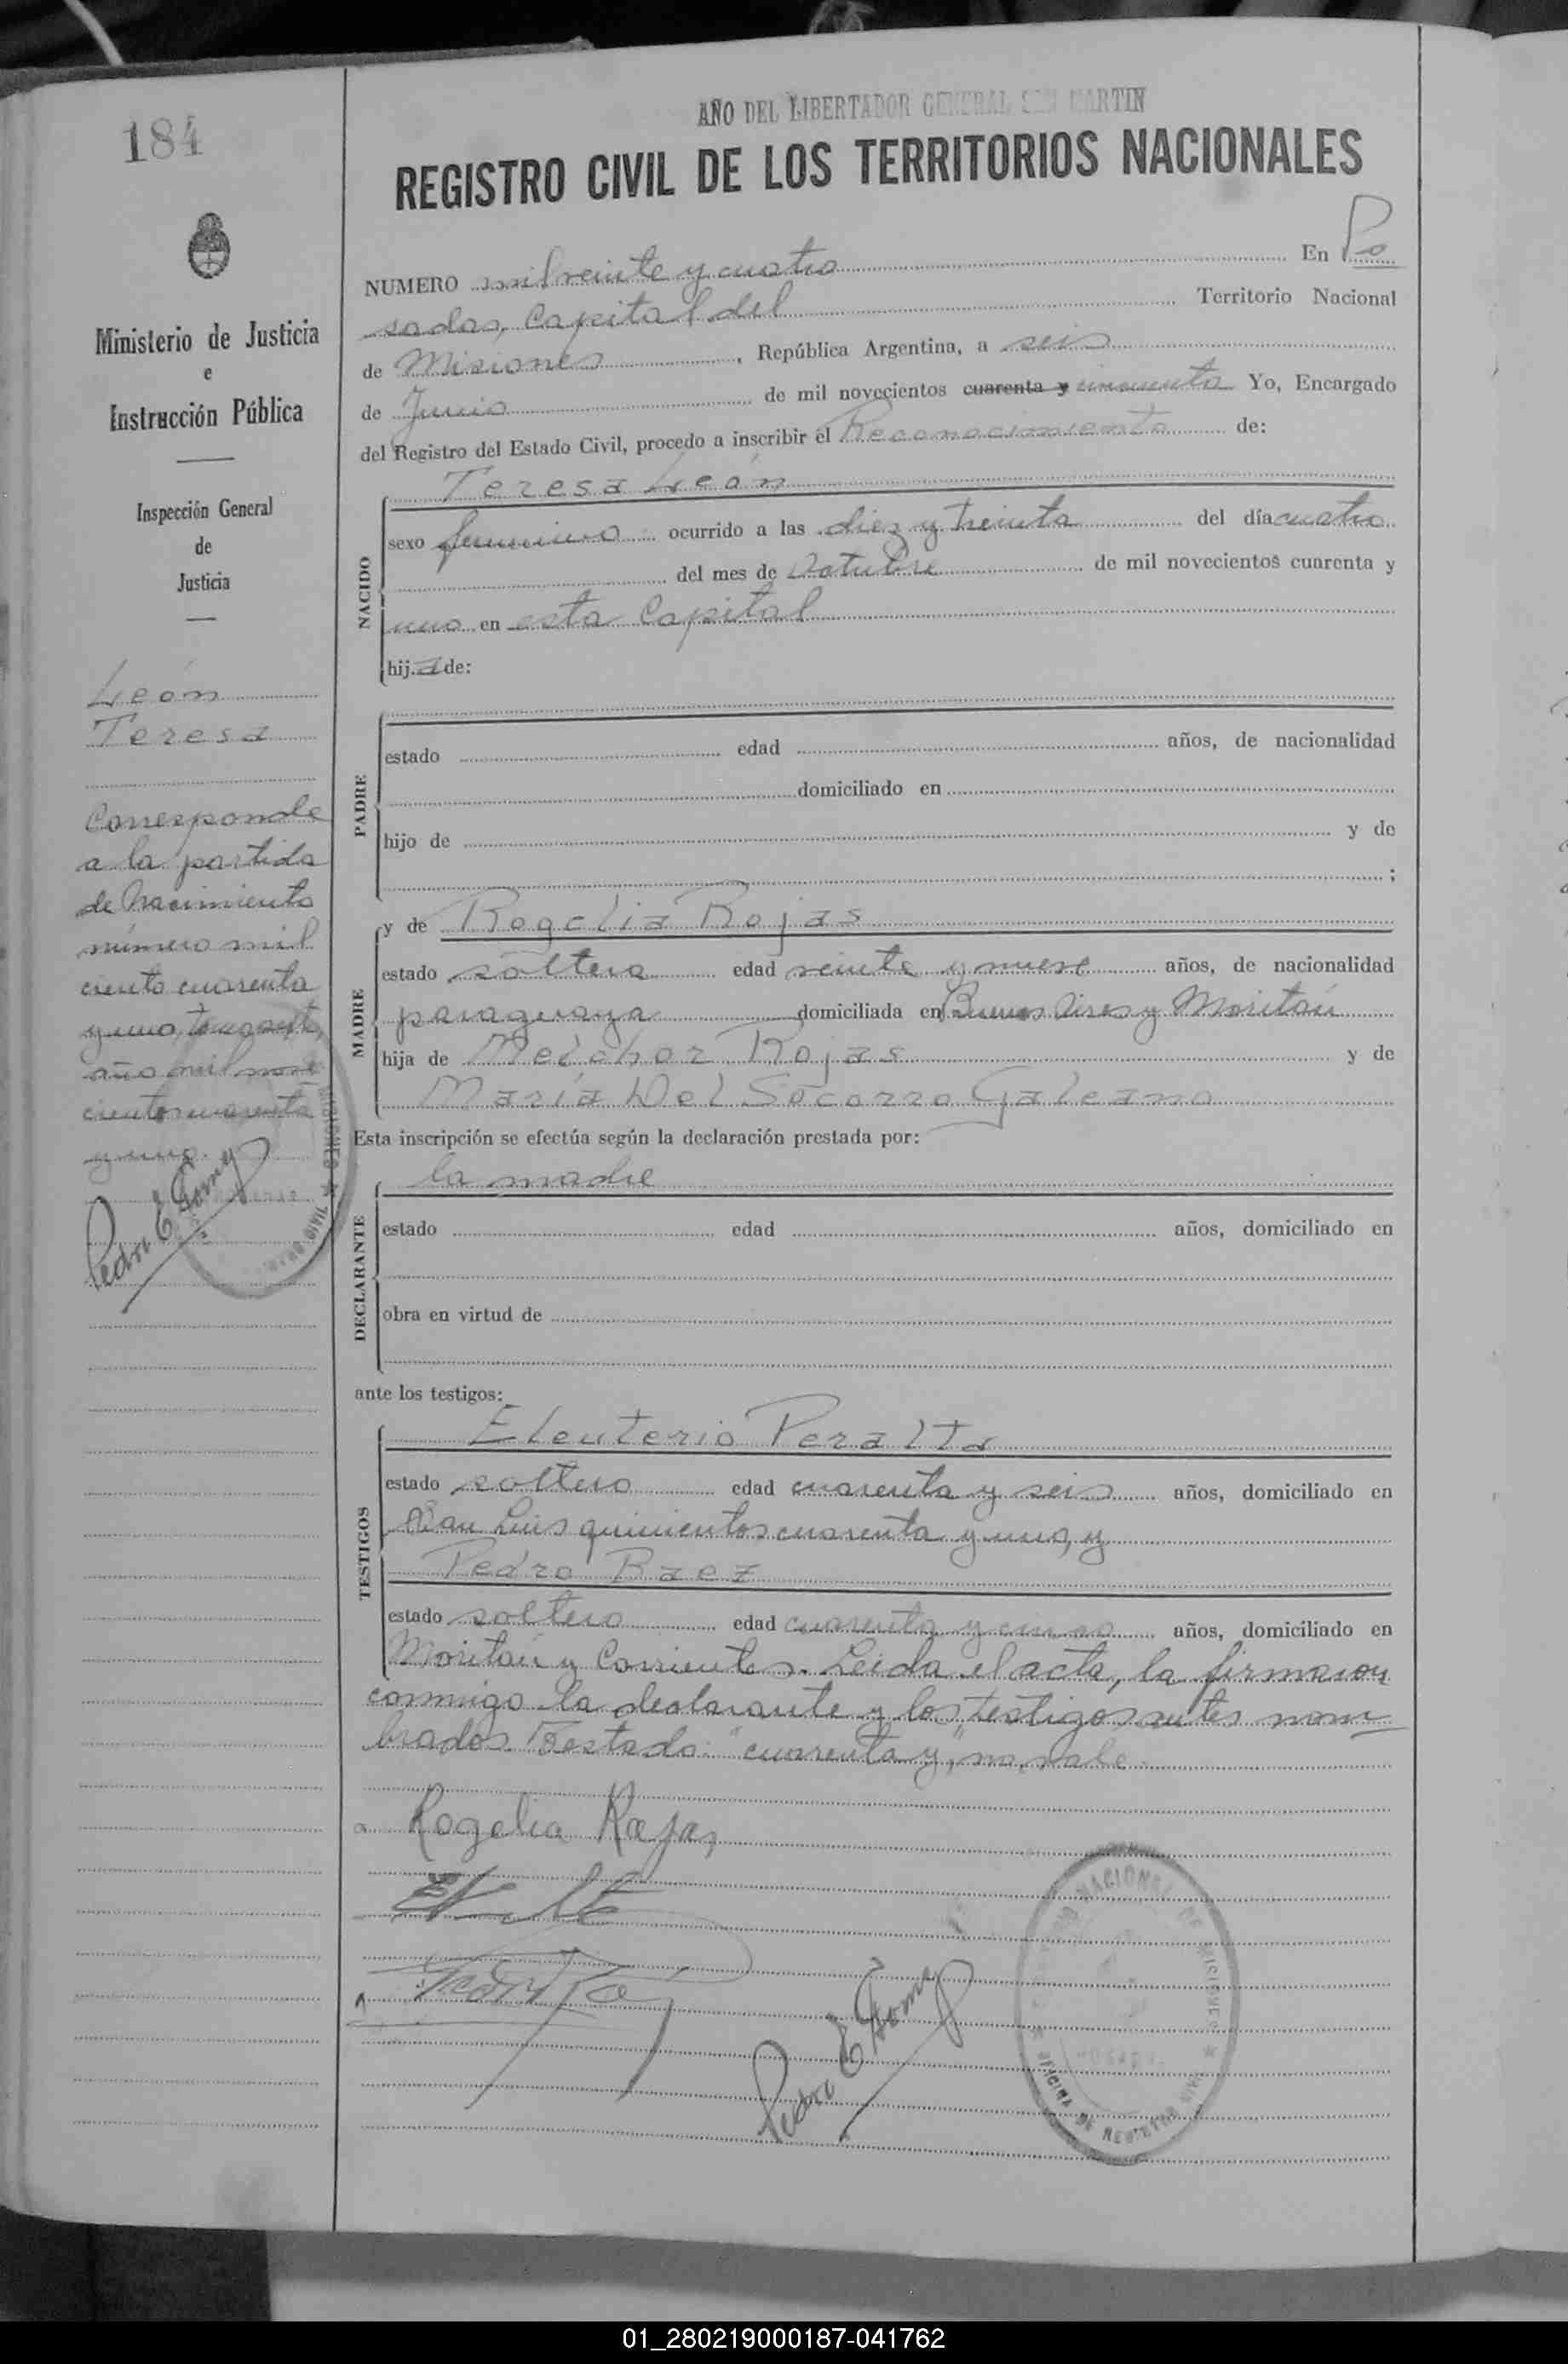 184
AÑO DEL LIBERTADOR GENERAL SAN MARTIN
REGISTRO CIVIL DE LOS TERRITORIOS NACIONALES
Ministerio de Justicia
e
Instrucción Pública
Inspección General
de
Justicia
León
Teresa
Corresponde
a la partida
de Nacimiento
número mil
ciento cuarenta
y uno, tomo sexto,
año mil nove
cientos cuarenta
y uno.
Pedro E.
NUMERO mil veinte y cuatro En Po
sadas, Capital del Territorio Nacional
de Misiones, República Argentina, a seis
de Junio de mil novecientos cuarenta y cincuenta Yo, Encargado
del Registro del Estado Civil, procedo a inscribir el Reconocimiento de:
NACIDO
Teresa León
sexo femenino ocurrido a las diez y treinta del día cuatro
del mes de Octubre de mil novecientos cuarenta y
uno en esta Capital
hija de:
PADRE
estado edad años, de nacionalidad
domiciliado en
hijo de y de
;
MADRE
y de Rogelia Rojas
estado soltera edad veinte y nueve años, de nacionalidad
paraguaya domiciliada en Buenos Aires y Moritán
hija de Melchor Rojas y de
María Del Socorro Galeano
Esta inscripción se efectúa según la declaración prestada por:
DECLARANTE
la madre
estado edad años, domiciliado en
obra en virtud de
ante los testigos:
TESTIGOS
Eleuterio Peralta
estado soltero edad cuarenta y seis años, domiciliado en
San Luis quinientos cuarenta y uno, y
Pedro Baez
estado soltero edad cuarenta y años, domiciliado en
Moritán y Corrientes. Leida el acta, la firmaron
conmigo la declarante y los testigos antes nom
brados. Testado: "cuarenta y", no vale.
Rogelia Rojas
Pedro E.
NACIONAL DE MISIONES
OFICINA DE REGISTRO CIVIL
01_280219000187-041762